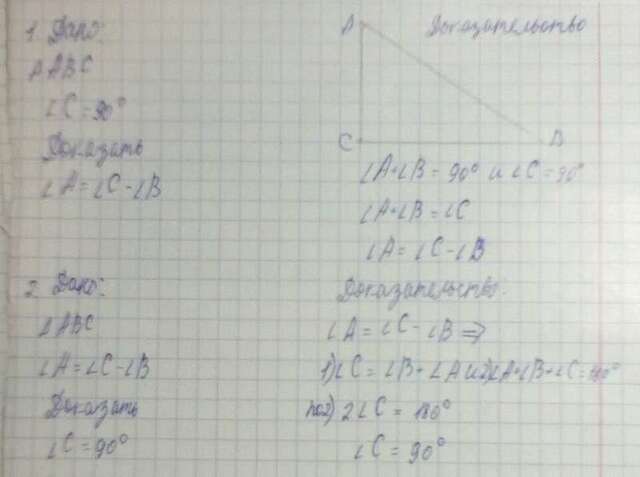 1. Дано:
Δ ABC
∠C = 90°
Доказать
∠A = ∠C - ∠B
Доказательство
A
C
B
∠A+∠B = 90° и ∠C = 90°
∠A+∠B = ∠C
∠A = ∠C - ∠B
2. Дано:
Δ ABC
∠A = ∠C - ∠B
Доказать
∠C = 90°
Доказательство.
∠A = ∠C - ∠B ⇒
1) ∠C = ∠B + ∠A и 2) ∠A+∠B+∠C = 180°
по 2) 2∠C = 180°
∠C = 90°